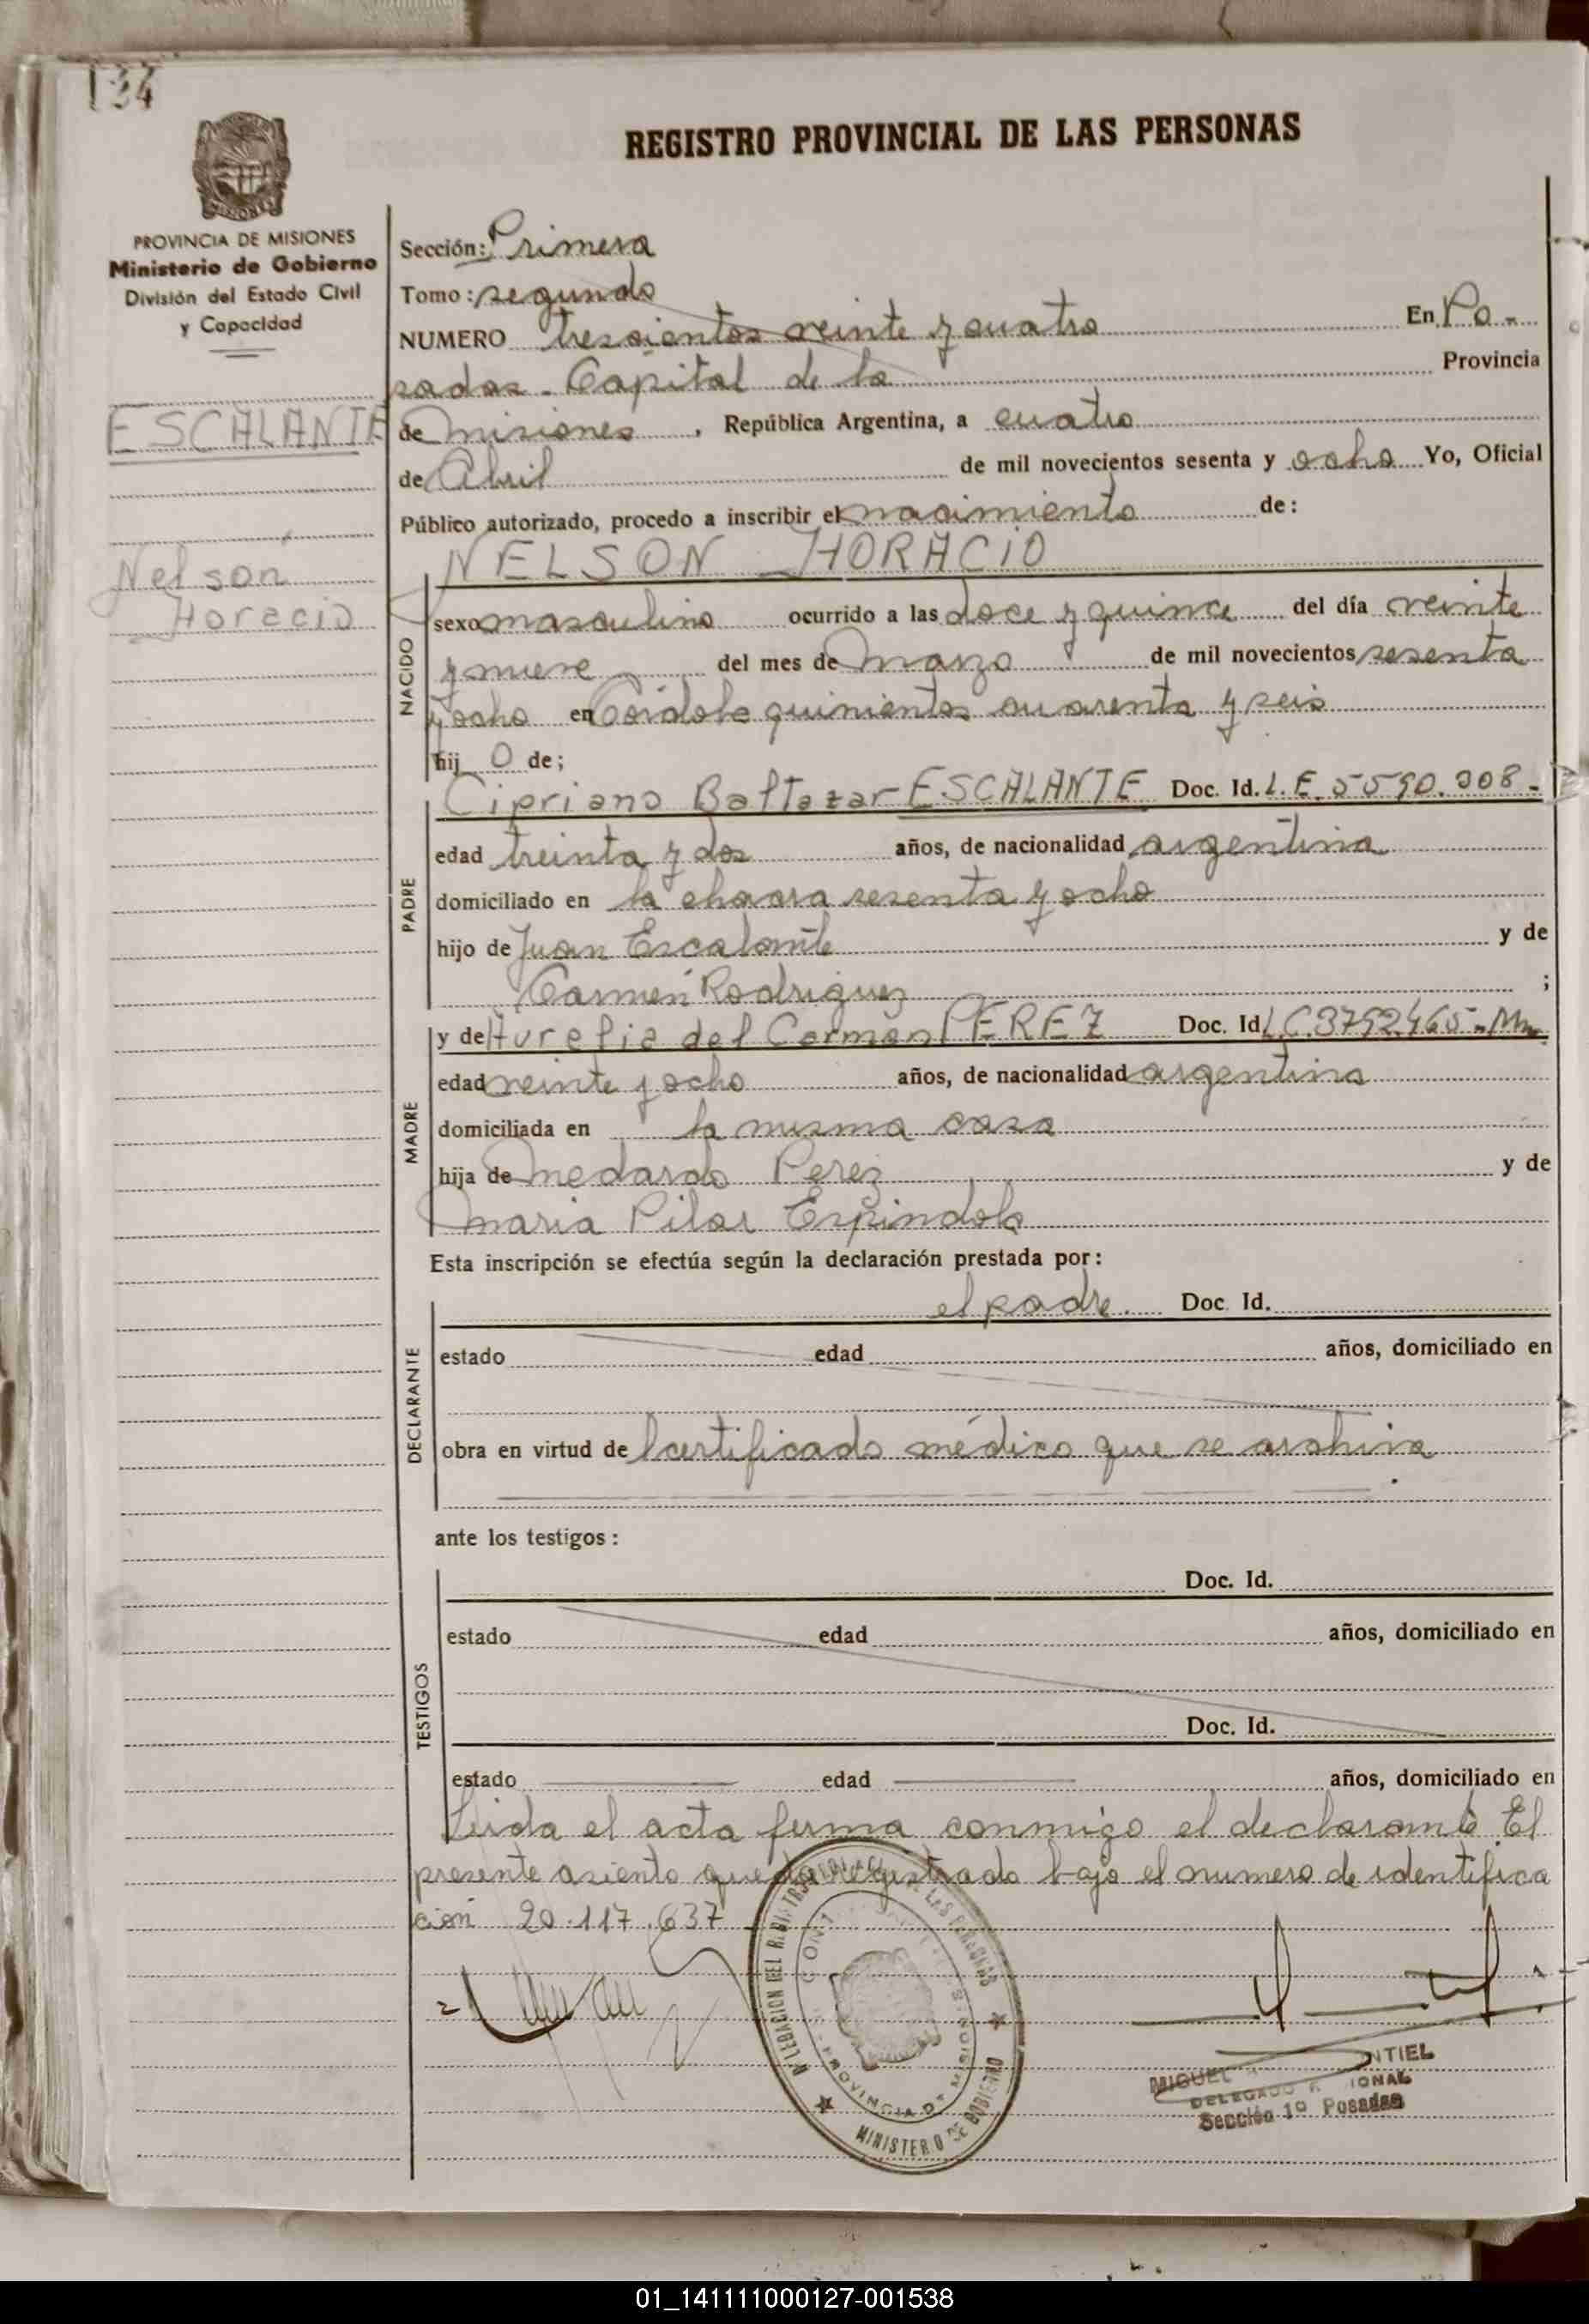 134
REGISTRO PROVINCIAL DE LAS PERSONAS
PROVINCIA DE MISIONES
Ministerio de Gobierno
División del Estado Civil
y Capacidad
ESCALANTE
Nelson
Horacio
Sección: Primera
Tomo: segundo
NUMERO trescientos veinte y cuatro En Po-
sadas - Capital de la Provincia
de Misiones, República Argentina, a cuatro
de Abril de mil novecientos sesenta y ocho Yo, Oficial
Público autorizado, procedo a inscribir el nacimiento de:
NELSON HORACIO
NACIDO
sexo masculino ocurrido a las doce y quince del día veinte
y nueve del mes de Marzo de mil novecientos sesenta
y ocho en Córdoba quinientos cuarenta y seis
hij o de;
PADRE
Cipriano Baltazar ESCALANTE Doc. Id. L.E. 5590.308-
edad treinta y dos años, de nacionalidad argentina
domiciliado en la chacra sesenta y ocho
hijo de Juan Escalante y de
Carmen Rodriguez ;
MADRE
y de Aurelia del Carmen PEREZ Doc. Id L.C.3792.465-Mn
edad veinte y ocho años, de nacionalidad argentina
domiciliada en la misma casa
hija de Medardo Perez y de
Maria Pilar Espindola
Esta inscripción se efectúa según la declaración prestada por:
DECLARANTE
el padre. Doc. Id.
estado edad años, domiciliado en
obra en virtud de l certificado médico que se archiva
ante los testigos:
TESTIGOS
Doc. Id.
estado edad años, domiciliado en
Doc. Id.
estado edad años, domiciliado en
Leida el acta firma conmigo el declarante. El
presente asiento queda registrado bajo el numero de identifica
ción 20.117.637
PROVINCIA DE MISIONES
MINISTERIO DE GOBIERNO
MIGUEL
DELEGADO
Sección 1º Posadas
01_141111000127-001538